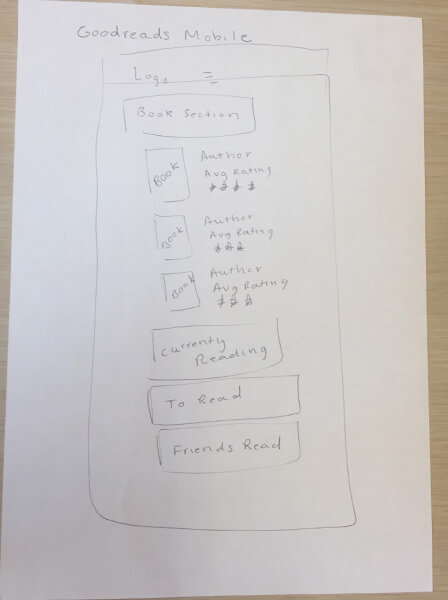 Goodreads Mobile
Logo
Book Section
Book
Author
Avg Rating
Book
Author
Avg Rating
Book
Author
Avg Rating
Currently
Reading
To Read
Friends Read